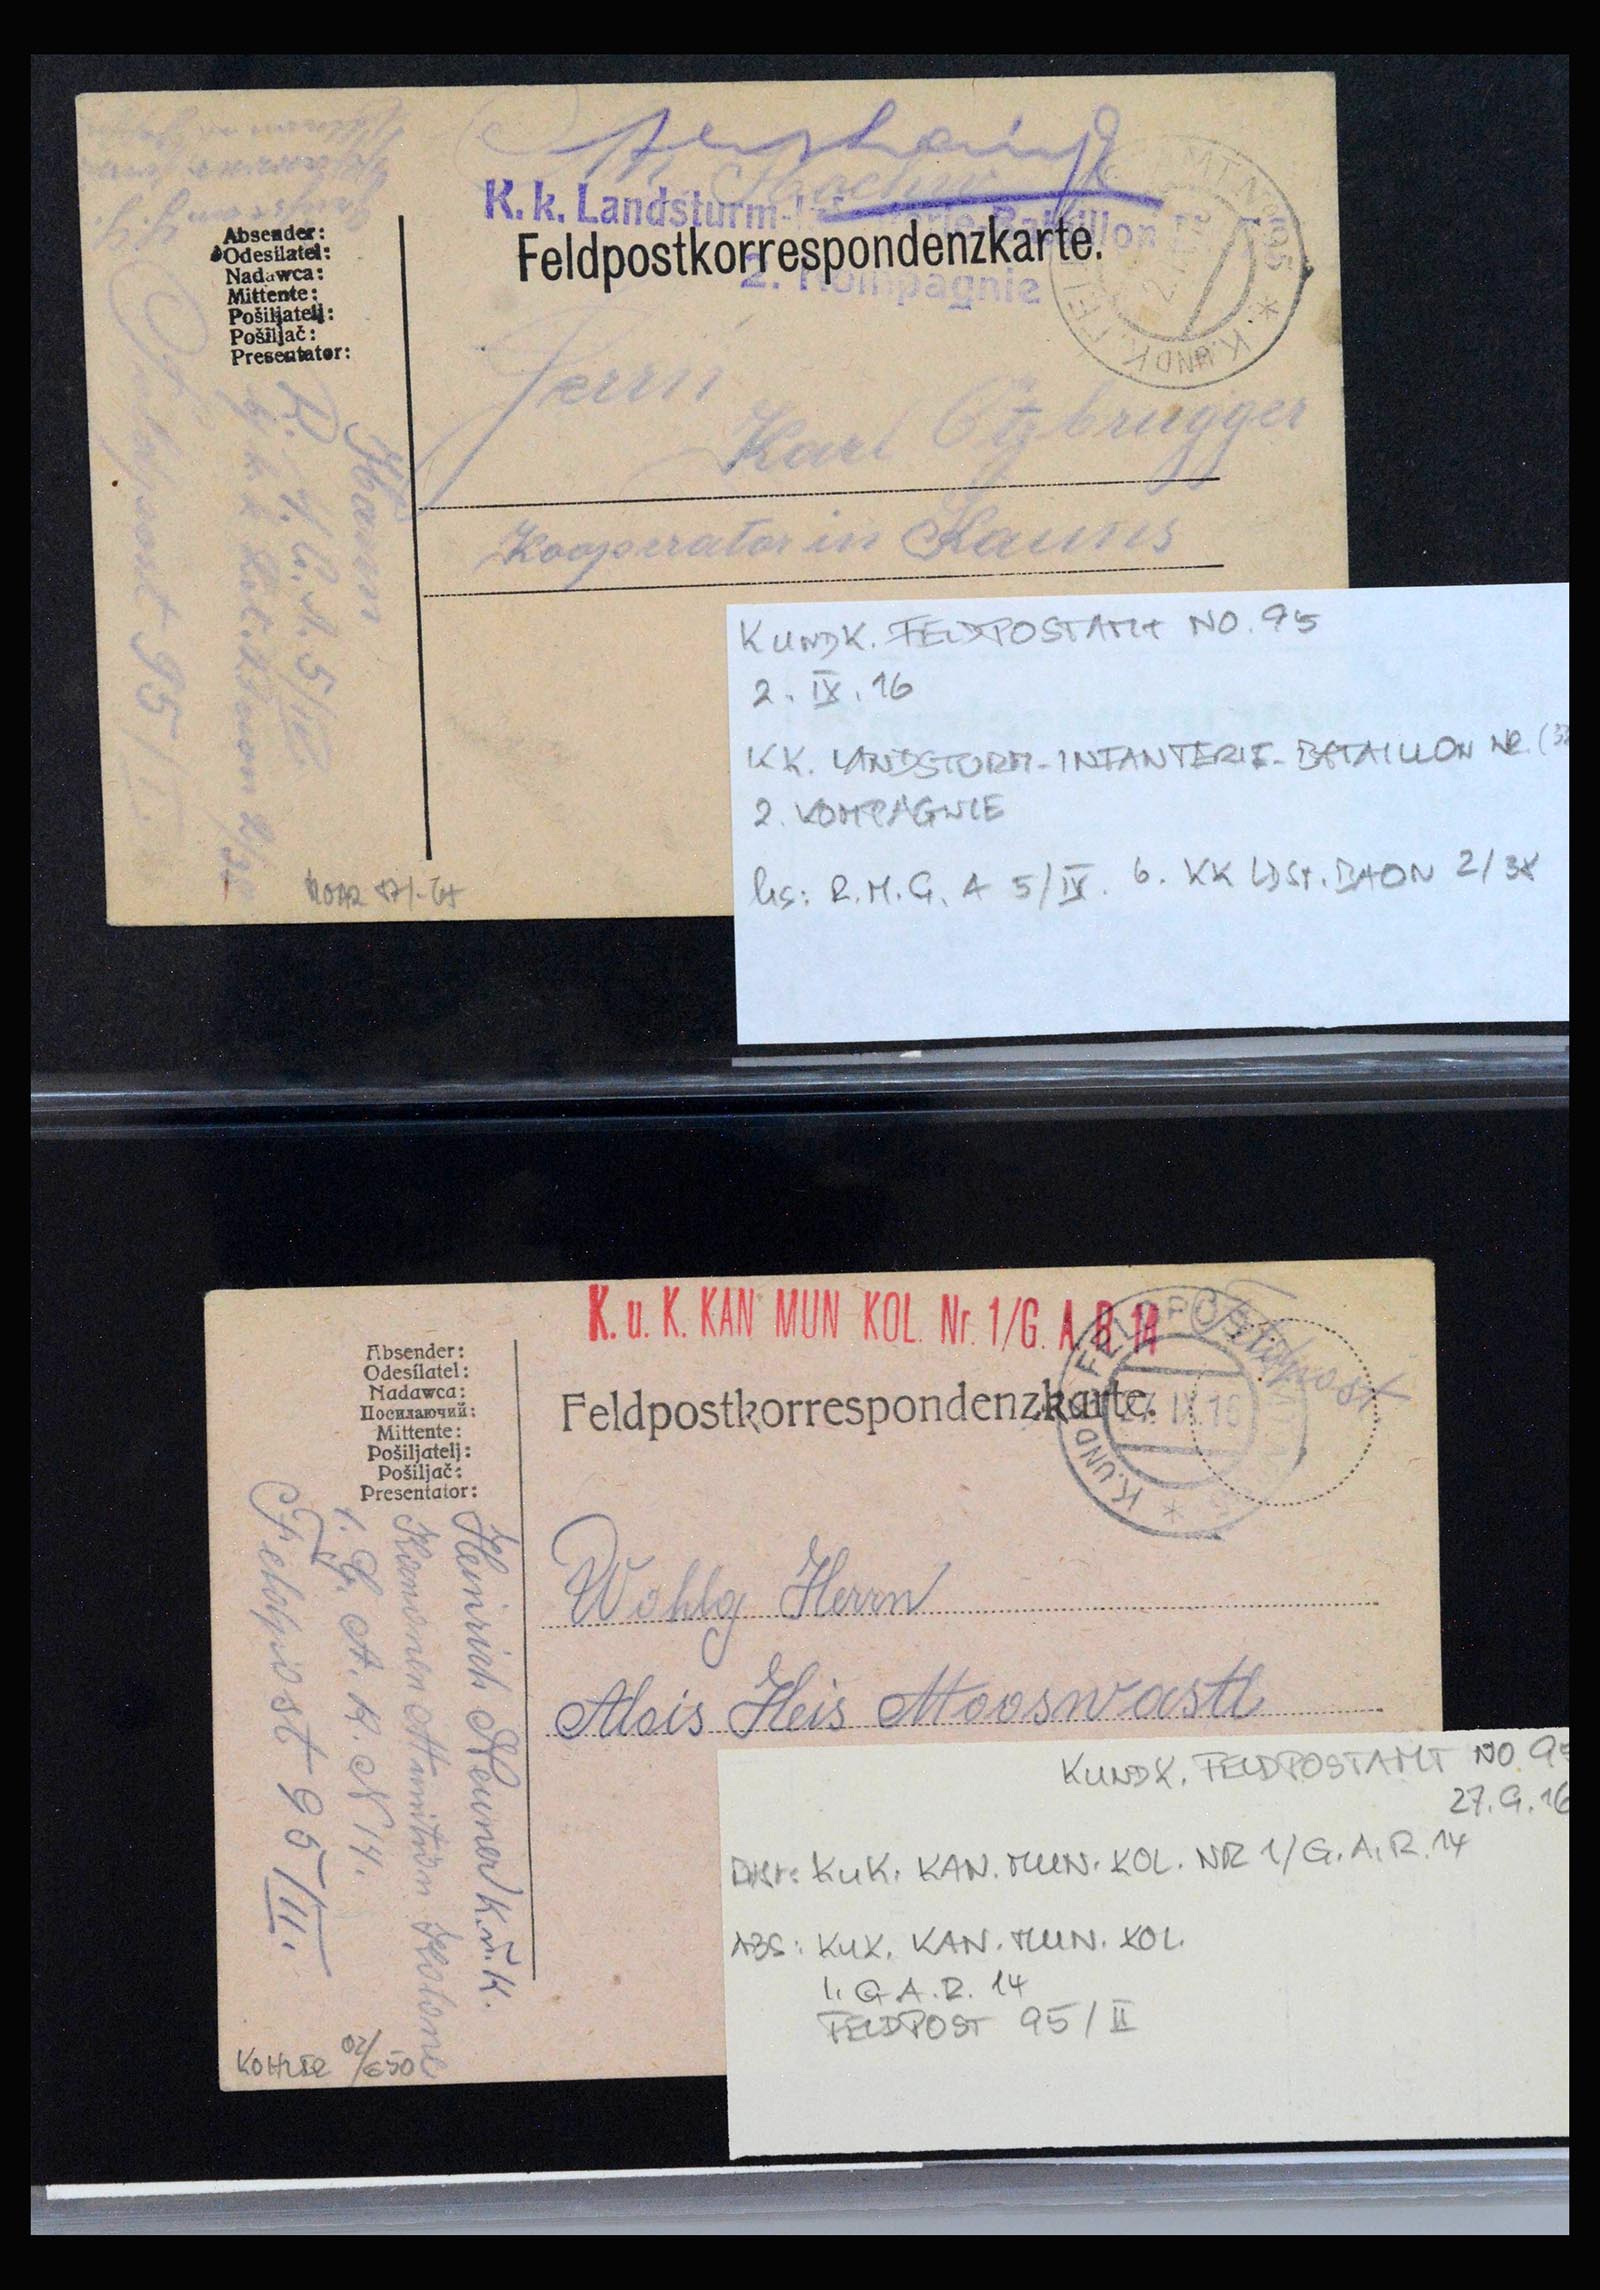 K. k. Landsturm-Infanterie-Bataillon
2. Kompagnie
Feldpostkorrespondenzkarte.
Absender:
Odesílatel:
Nadawca:
Mittente:
Pošiljatelj:
Pošiljač:
Presentator:
K. UND K. FELDPOSTAMT No 95 *
Herrn
Karl Etzbrugger
Kooperator in Kauns
Feldpost 95/
KUNDK. FELDPOSTAMT NO. 95
2. IX. 16
KK. LANDSTURM-INFANTERIE-BATAILLON NR. (38
2. KOMPAGNIE
hs: R.M.G. A 5/IV. 6. KK LDST. BAON 2/38
K. u. K. KAN MUN KOL. Nr. 1/G. A. R. 14
Absender:
Odesílatel:
Nadawca:
Посилаючий:
Mittente:
Pošiljatelj:
Pošiljač:
Presentator:
Feldpostkorrespondenzkarte.
K. UND K. FELDPOSTAMT
27. IX. 16
Feldpost
Wohlg Herrn
Alois Heis Mooswastl
Heinrich Neuner K.u.K.
Kanonen Munition Kolone
1. G. A. R. N 14.
Feldpost 95/III.
KOHLER 02/€50
KUNDK. FELDPOSTAMT NO 95
27.9.16
DRST: KUK. KAN. MUN. KOL. NR 1/G.A.R. 14
ABS: KUK. KAN. MUN. KOL.
1. G A.R. 14
FELDPOST 95/II